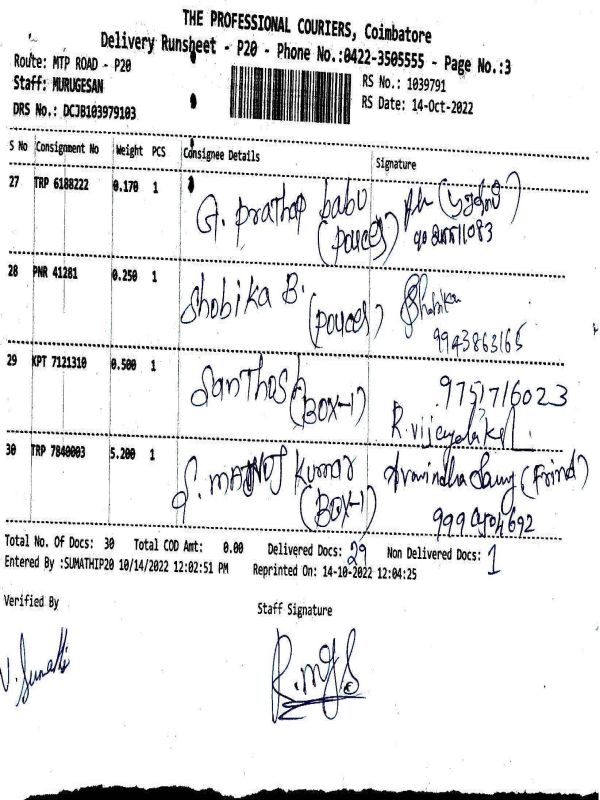 THE PROFESSIONAL COURIERS, Coimbatore
Delivery Runsheet - P20 - Phone No.:0422-3505555 - Page No.:3
Route: MTP ROAD - P20
RS No.: 1039791
Staff: MURUGESAN
RS Date: 14-Oct-2022
DRS No.: DCJB103979103
S No Consignment No Weight PCS Consignee Details Signature
27 TRP 6188222 0.170 1 G. Prathap babu
(Pouces)
28 PNR 41281 0.250 1 Shobika B. Shobika
(Pouces) 9943863165
29 KPT 7121310 0.500 1 Santhosh 9751716023
(BOX-1) R.vijayalak
30 TRP 7840003 5.200 1 S. MANOJ Kumar Aravindha Samy (Frind)
(BOX-1)
Total No. Of Docs: 30 Total COD Amt: 0.00 Delivered Docs: 29 Non Delivered Docs: 1
Entered By :SUMATHIP20 10/14/2022 12:02:51 PM Reprinted On: 14-10-2022 12:04:25
Verified By Staff Signature
V. Sumathi R.mgs